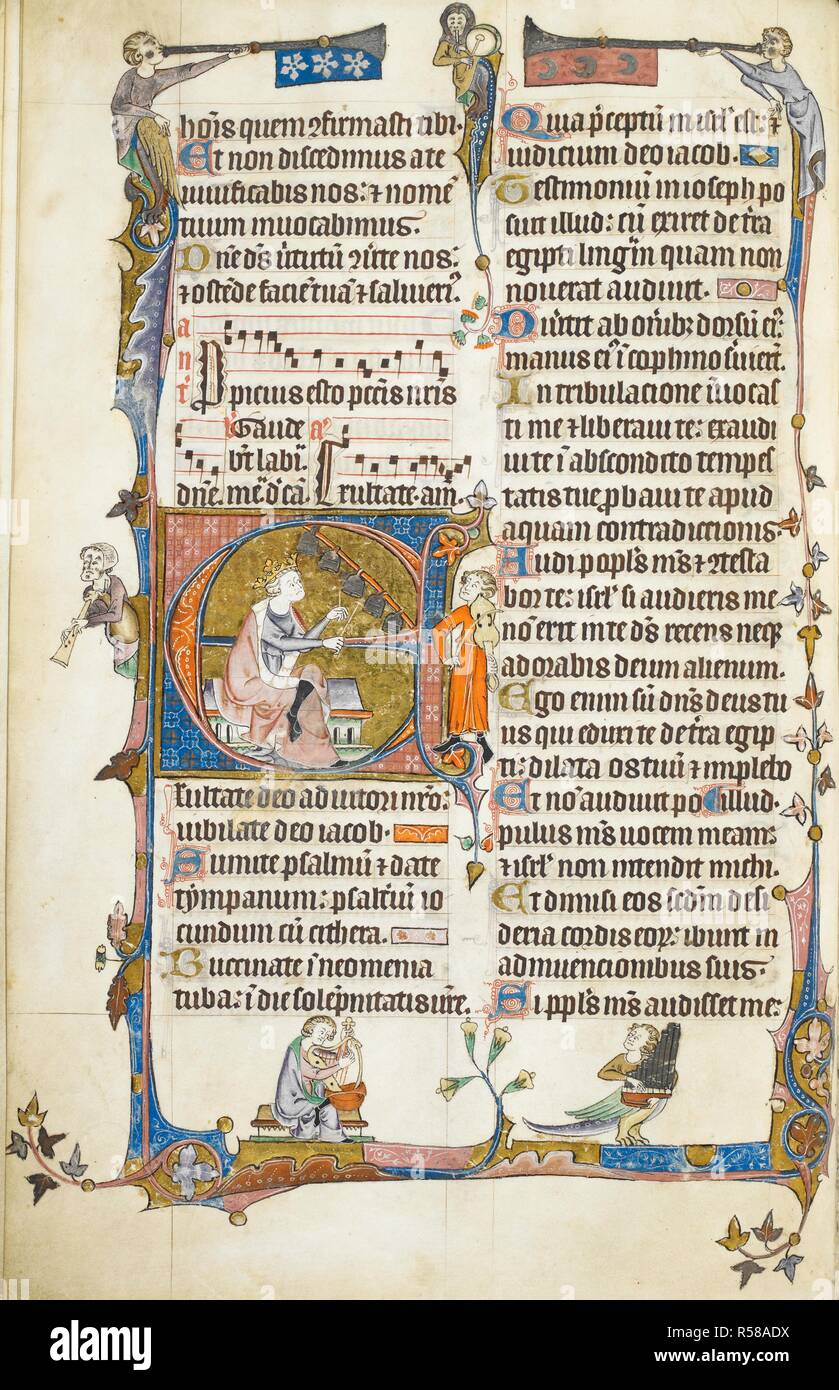 hoıs quem ꝯfirmasti tibi.
Et non discedimus a te
uiuificabis nos: ⁊ nome̅
tuum inuocabimus.
Dn̅e d̅s uirtutu̅ ꝯu̅te nos:
⁊ oste̅de facie̅ tua̅ ⁊ salui eri.
an̅t
Ppicius esto pcc̅is nr̅is
Gaude a̅
bt̅ labi̅.
dn̅e. me d̅ ca̅. Exultate. am̅.
Exultate deo adiutori nr̅o:
iubilate deo iacob.
Sumite psalmu̅ ⁊ date
tympanum: psalt̅iu̅ io
cundum cu̅ cithera.
Buccinate i̅ neomenia
tuba: i̅ die solepnitatis ur̅e.
Quia p̅ceptu̅ in isr̅l est: ⁊
iudicium deo iacob.
Testimoniu̅ in ioseph po
suit illud: cu̅ exiret de t̅ra
egipti lingua̅ quam non
nouerat audiuit.
Diu̅tit ab on̅ib; dorsu̅ ei᷒:
manus ei᷒ i̅ cophino s̅uier̅t.
In tribulacione i̅uocas
ti me ⁊ liberaui te: exaudi
ui te i̅ abscondito tempes
tatis tue p̅baui te apud
aquam contradictionis.
Audi popl̅s m̅s ⁊ ꝯtesta
bor te: isr̅l si audieris me
no̅ erit in te d̅s recens neq;
adorabis deum alienum.
Ego enim su̅ dn̅s deus tu
us qui eduxi te de t̅ra egip
ti: dilata os tuu̅ ⁊ implebo
Et no̅ audiuit po illud.
pulus m̅s uocem meam:
⁊ isr̅l non intendit michi.
Et dimisi eos s̅cd̅m desi
deria cordis eoꝝ: ibunt in
adinuencionibus suis.
Si ppl̅s m̅s audisset me:
alamy
Image ID: R58ADX
www.alamy.com